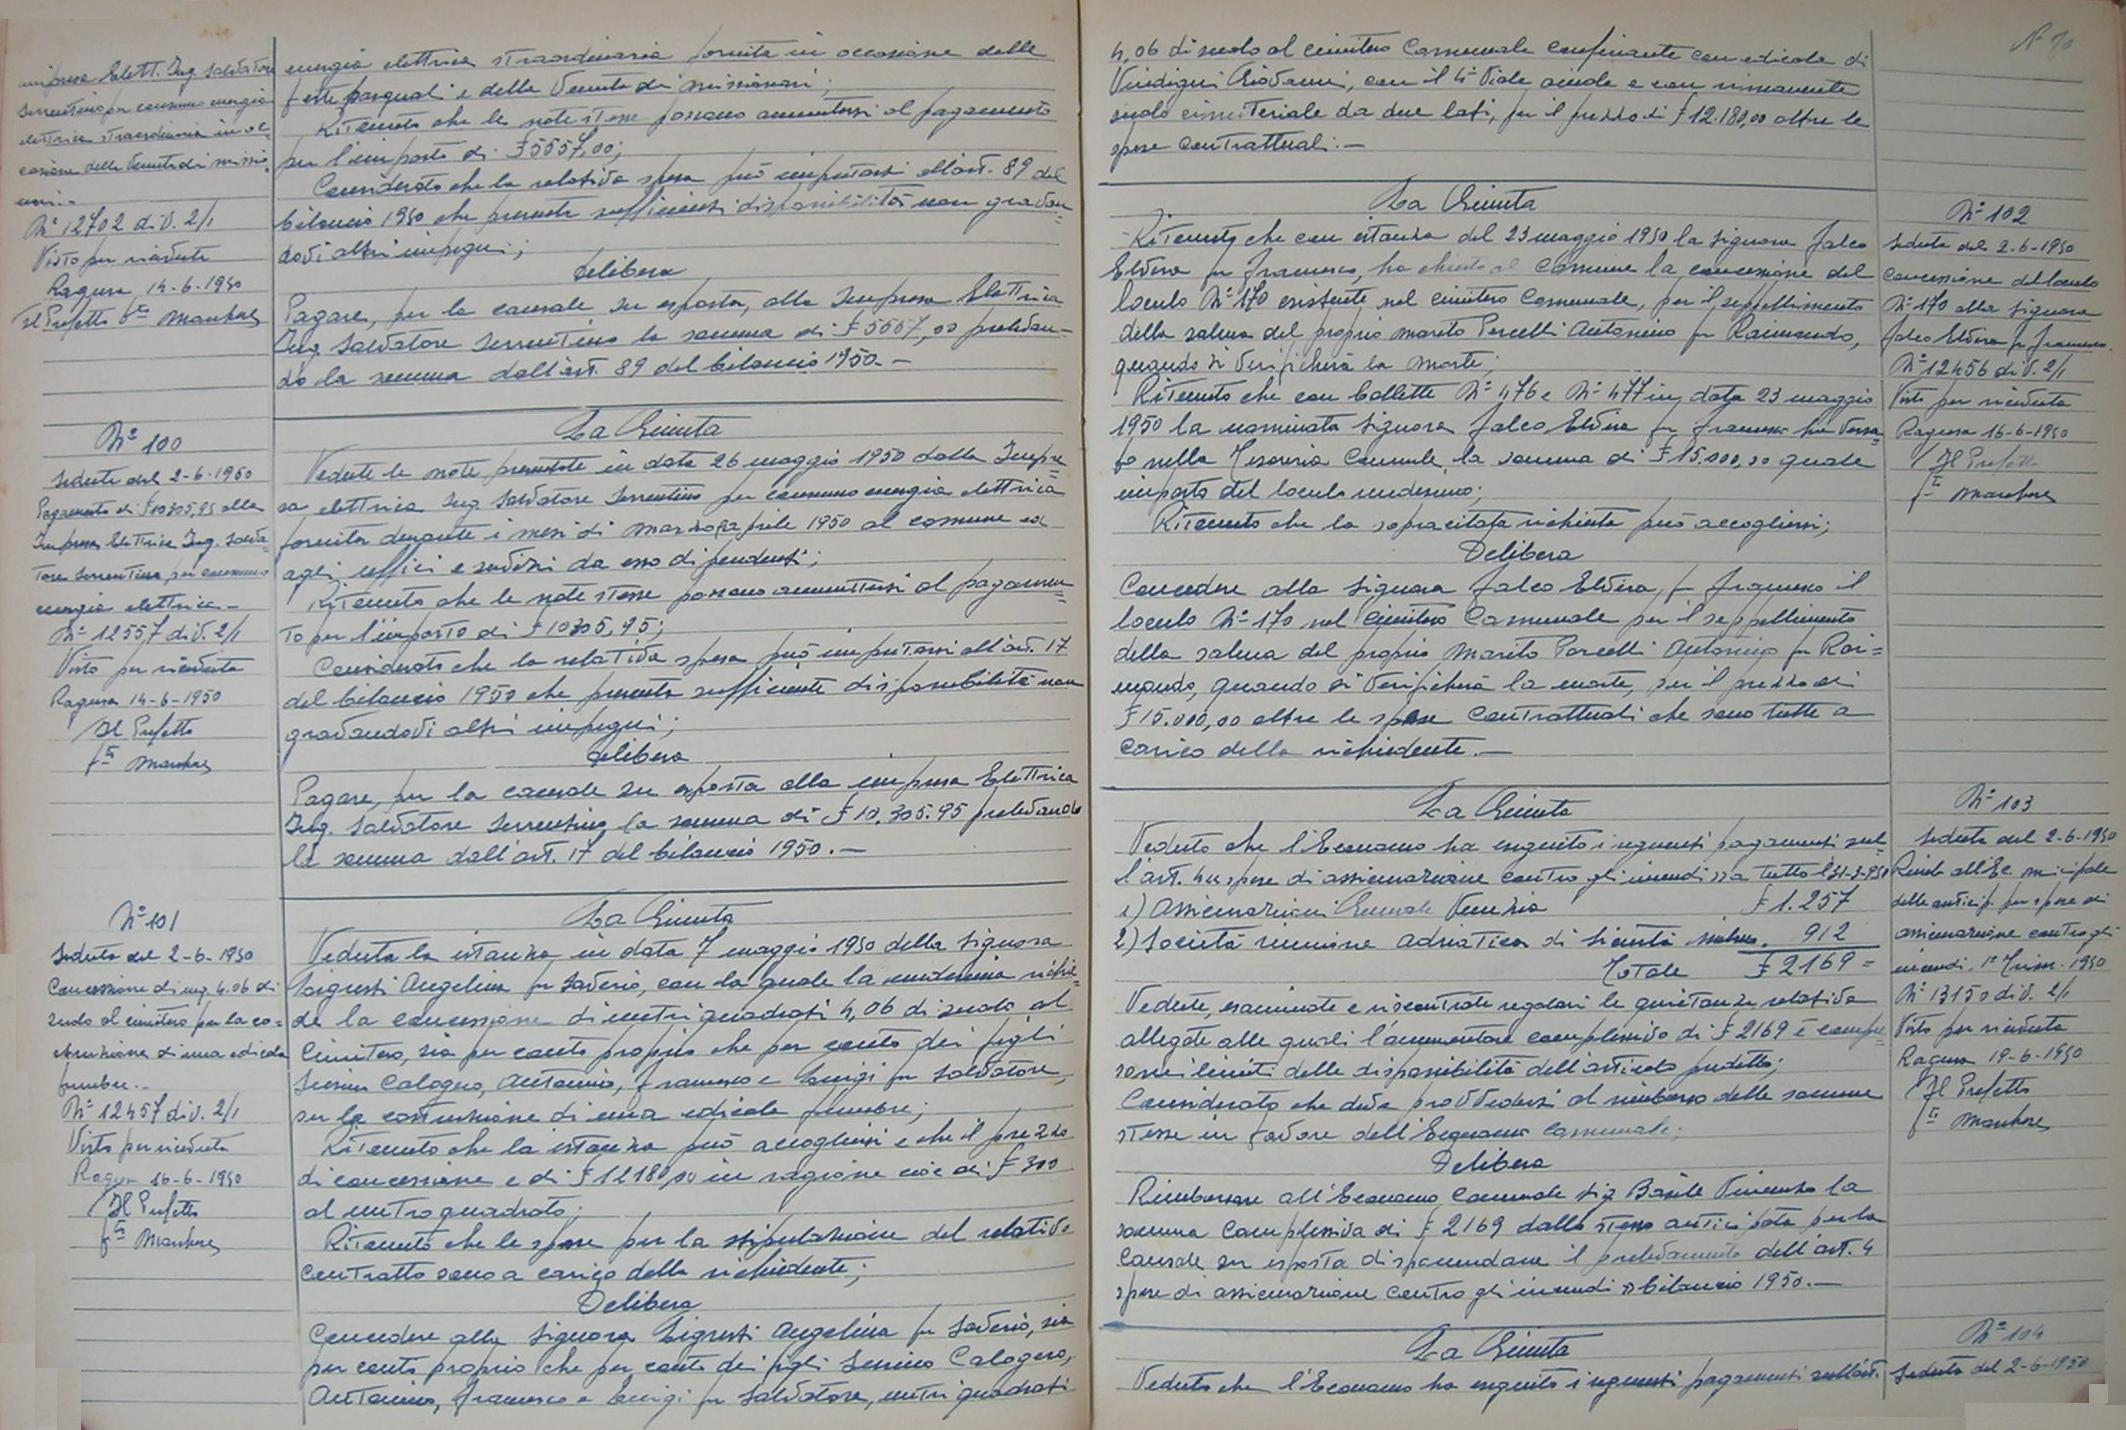 impresa Elett. Ing. Salvatore
Sorrentino per consumo energia
elettrica straordinaria in oc-
casione della Venuta di missio=
nari.-
N° 12702 di V. 2/1
Visto per ricevuta
Ragusa 14-6-1950
Il Prefetto
energia elettrica straordinaria fornita in occasione delle
feste pasquali e della Venuta di missionari;
Ritenuto che le note stesse possono ammettersi al pagamento
per l'importo di £ 5557,00;
Considerato che la relativa spesa può imputarsi all'art. 89 del
bilancio 1950 che presenta sufficienti disponibilità non gravan=
dovi altri impegni;
Delibera
Pagare, per la causale su esposta, alla Impresa Elettrica
Ing. Salvatore Sorrentino la somma di £ 5557,00 prelevan-
do la somma dall'art. 89 del bilancio 1950.-
N° 100
Seduta del 2-6-1950
Pagamento di £10305,95 alla
Impresa Elettrica Ing. Salva-
tore Sorrentino per consumo
energia elettrica.-
N° 12557 di V. 2/1
Visto per ricevuta
Ragusa 14-6-1950
Il Prefetto
La Giunta
Vedute le note presentate in data 26 maggio 1950 dalla Impre=
sa elettrica Ing. Salvatore Sorrentino per consumo energia elettrica
fornita durante i mesi di marzo aprile 1950 al comune ed
agli uffici e servizi da esso dipendenti;
Ritenuto che le note stesse possono ammettersi al pagamen=
to per l'importo di £ 10305,95;
Considerato che la relativa spesa può imputarsi all'art. 17
del bilancio 1950 che presenta sufficiente disponibilità non
gravandovi altri impegni;
Delibera
Pagare, per la causale su esposta alla impresa Elettrica
Ing. Salvatore Sorrentino, la somma di £ 10.305.95 prelevando
la somma dall'art. 17 del bilancio 1950.-
N° 101
Seduta del 2-6-1950
Concessione di mq. 4.06 di
suolo al cimitero per la co=
struzione di una edicola
funebre.-
N° 12457 di V. 2/1
Visto per ricevuta
Ragusa 16-6-1950
Il Prefetto
La Giunta
Veduta la istanza in data 7 maggio 1950 della Signora
Ligresti Angelina fu Saverio, con la quale la medesima richie=
de la concessione di metri quadrati 4,06 di suolo al
Cimitero, sia per conto proprio che per conto dei figli
Calogero, Antonino, Francesco e Luigi fu Salvatore,
per la costruzione di una edicola funebre;
Ritenuto che la istanza può accogliersi e che il prezzo
di concessione e di £ 12180,00 in ragione cioè di £ 300
al metro quadrato;
Ritenuto che le spese per la stipulazione del relativo
contratto sono a carico della richiedente;
Delibera
Concedere alla Signora Ligresti Angelina fu Saverio, sia
per conto proprio che per conto dei figli Calogero,
Antonino, Francesco e Luigi fu Salvatore, metri quadrati
4,06 di suolo al cimitero Comunale confinante con edicola di
Vindigni Giovanni, con il 4° Viale e con rimanente
suolo cimiteriale da due lati, per il prezzo di £ 12.180,00 oltre le
spese contrattuali.-
La Giunta
Ritenuto che con istanza del 23 maggio 1950 la Signora Falco
Elvira fu Francesco, ha chiesto al Comune la concessione del
loculo N° 170 esistente nel cimitero Comunale, per il seppellimento
della salma del proprio marito Porcelli Antonino fu Raimondo,
quando si verificherà la morte;
Ritenuto che con bollette N° 476 e N° 477 in data 23 maggio
1950 la nominata Signora Falco Elvira fu Francesco ha versa=
to nella Tesoreria Comunale, la somma di £ 15.000,00 quale
importo del loculo medesimo;
Ritenuto che la sopracitata richiesta può accogliersi;
Delibera
Concedere alla Signora Falco Elvira, fu Francesco il
loculo N° 170 nel Cimitero Comunale per il seppellimento
della salma del proprio marito Porcelli Antonino fu Rai=
mondo, quando si verificherà la morte, per il prezzo di
£ 15.000,00 oltre le spese contrattuali che sono tutte a
carico della richiedente.-
N° 102
Seduta del 2-6-1950
Concessione del loculo
N° 170 alla Signora
Falco Elvira fu Francesco.
N° 12456 di V. 2/1
Visto per ricevuta
Ragusa 16-6-1950
Il Prefetto
La Giunta
Veduto che l'Economo ha eseguito i seguenti pagamenti sul=
l'art. 4 spese di assicurazione contro gli incendi a tutto il 31-3-950
1) Assicurazioni Generale Venezia £ 1.257
2) Società riunione Adriatica di Sicurtà 912
Totale £ 2169=
Vedute, esaminate e riscontrate regolari le quietanze relative
allegate alle quali l'ammontare complessivo di £ 2169 è compre=
so nei limiti delle disponibilità dell'articolo predetto;
Considerato che deve provvedersi al rimborso delle somme
stesse in favore dell'Economo Comunale;
Delibera
Rimborsare all'Economo Comunale Sig. Basile Vincenzo la
somma complessiva di £ 2169 dallo stesso anticipata per la
causale su esposta disponendone il prelevamento dell'art. 4
spese di assicurazione contro gli incendi bilancio 1950.-
N° 103
Seduta del 2-6-1950
Rimb. all'Ec. municipale
delle anticip. per spese di
assicurazione contro gli
incendi, 1° Trim. 1950
N° 13150 di V. 2/1
Visto per ricevuta
Ragusa 19-6-1950
Il Prefetto
La Giunta
Veduto che l'Economo ha eseguito i seguenti pagamenti sull'art.
N° 104
Seduta del 2-6-1950